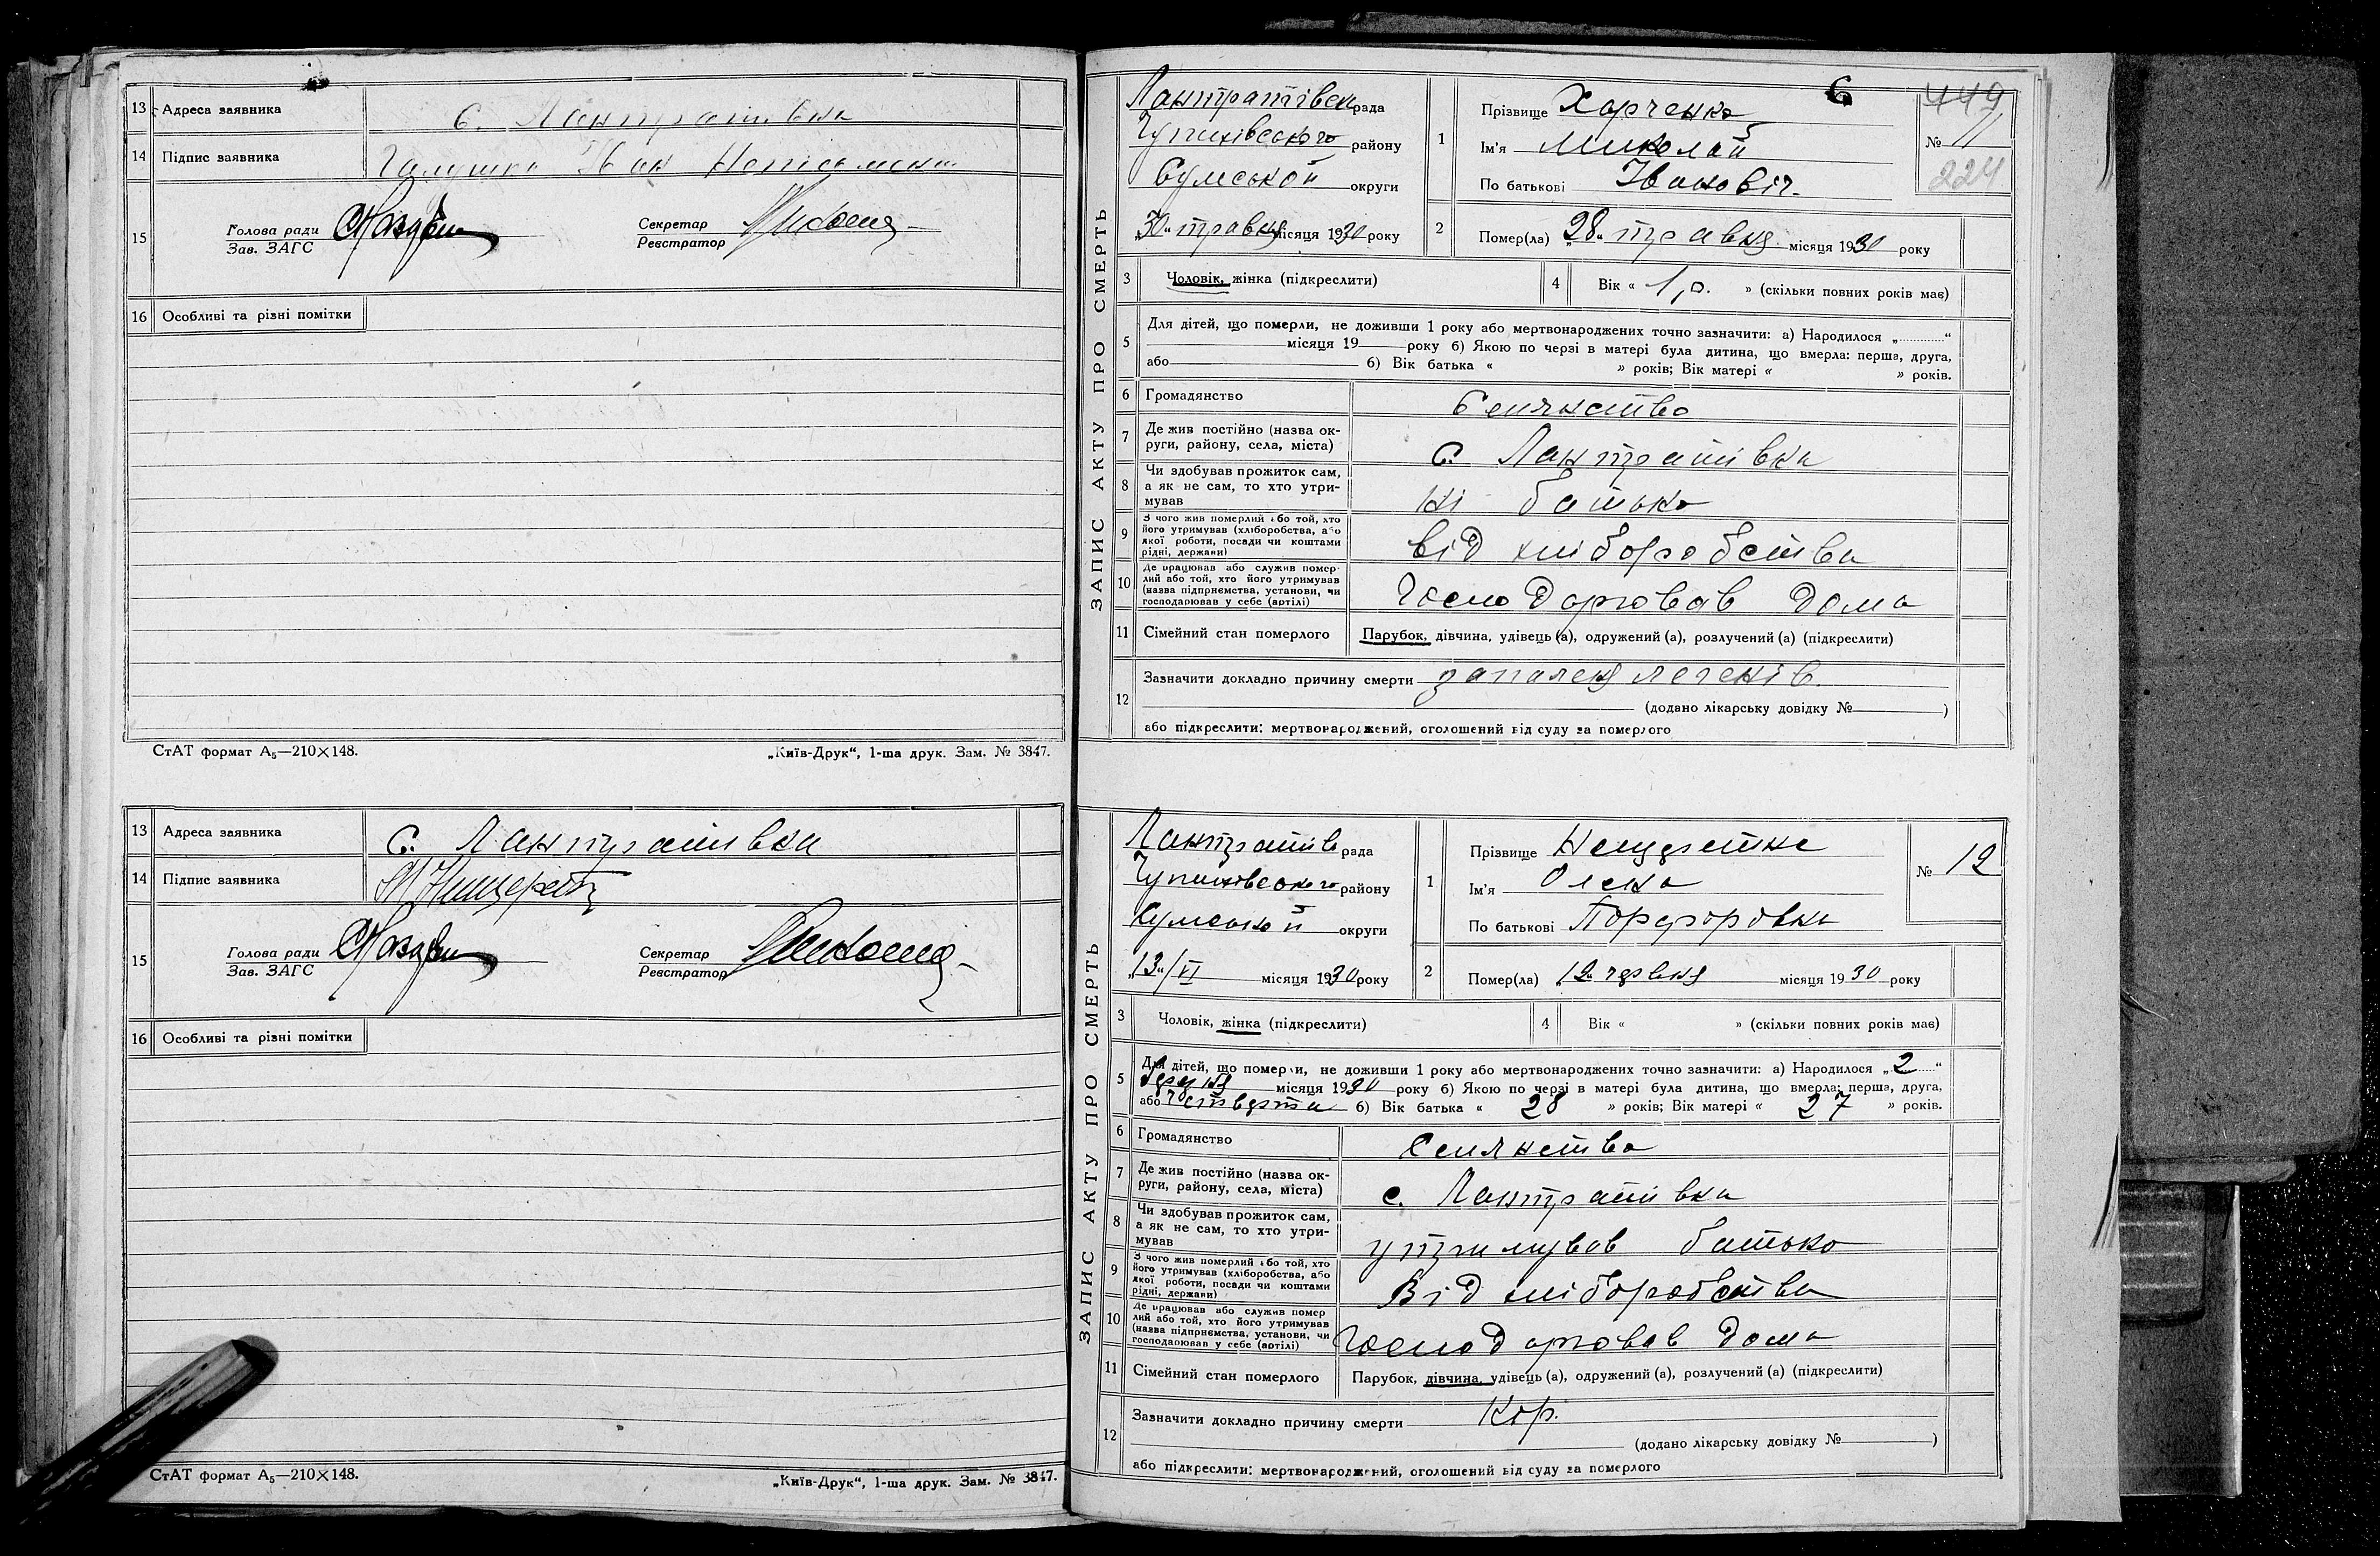 13 Адреса заявника с. Лантратівка
14 Підпис заявника Галушка Іван Неписьмени
15 Голова ради
Зав. ЗАГС
Секретар
Реєстратор
16 Особливі та різні помітки
СтАТ формат А5—210×148. „Київ-Друк“, 1-ша друк. Зам. № 3847.
13 Адреса заявника С. Лантратівка
14 Підпис заявника
15 Голова ради
Зав. ЗАГС
Секретар
Реєстратор
16 Особливі та різні помітки
СтАТ формат А5—210×148. „Київ-Друк“, 1-ша друк. Зам. № 3847.
6
449
224
ЗАПИС АКТУ ПРО СМЕРТЬ
Лантратівск рада
Чупихівського району
Сумської округи
„30“ травня місяця 1930 року
1 Прізвище Харченко
Ім'я Миколай
По батькові Івановіч.
№ 11
2 Помер(ла) „28“ травня місяця 1930 року
3 Чоловік, жінка (підкреслити)
4 Вік « 1 р. » (скільки повних років має)
5 Для дітей, що померли, не доживши 1 року або мертвонароджених точно зазначити: а) Народилося „ “
місяця 19 року б) Якою по черзі в матері була дитина, що вмерла: перша, друга,
або б) Вік батька « » років; Вік матері « » років.
6 Громадянство Селянство
7 Де жив постійно (назва ок-
руги, району, села, міста) С. Лантратівка
8 Чи здобував прожиток сам,
а як не сам, то хто утри-
мував ні батько
9 З чого жив померлий або той, хто
його утримував (хліборобства, або
якої роботи, посади чи коштами
рідні, держави) від хліборобства
10 Де працював або служив помер-
лий або той, хто його утримував
(назва підприємства, установи, чи
господарював у себе (артілі) Господарював дома
11 Сімейний стан померлого Парубок, дівчина, удівець (а), одружений (а), розлучений (а) (підкреслити)
12 Зазначити докладно причину смерти запаленя легенів.
(додано лікарську довідку № )
або підкреслити: мертвонароджений, оголошений від суду за померлого
ЗАПИС АКТУ ПРО СМЕРТЬ
Лантратівс рада
Чупихівського району
Сумської округи
„13“/VI місяця 1930 року
1 Прізвище
Ім'я Олена
По батькові
№ 12
2 Помер(ла) „12“ червня місяця 1930 року
3 Чоловік, жінка (підкреслити)
4 Вік « » (скільки повних років має)
5 Для дітей, що померли, не доживши 1 року або мертвонароджених точно зазначити: а) Народилося „2“
місяця 1930 року б) Якою по черзі в матері була дитина, що вмерла: перша, друга,
або четверта б) Вік батька « 28 » років; Вік матері « 27 » років.
6 Громадянство Селянство
7 Де жив постійно (назва ок-
руги, району, села, міста) с. Лантратівка
8 Чи здобував прожиток сам,
а як не сам, то хто утри-
мував утримував батько
9 З чого жив померлий або той, хто
його утримував (хліборобства, або
якої роботи, посади чи коштами
рідні, держави) Від хліборобства
10 Де працював або служив помер
лий або той, хто його утримував
(назва підприємства, установи, чи
господарював у себе (артілі) Господарював дома
11 Сімейний стан померлого Парубок, дівчина, удівець (а), одружений (а), розлучений (а) (підкреслити)
12 Зазначити докладно причину смерти Кір.
(додано лікарську довідку № )
або підкреслити: мертвонароджений, оголошений від суду за померлого